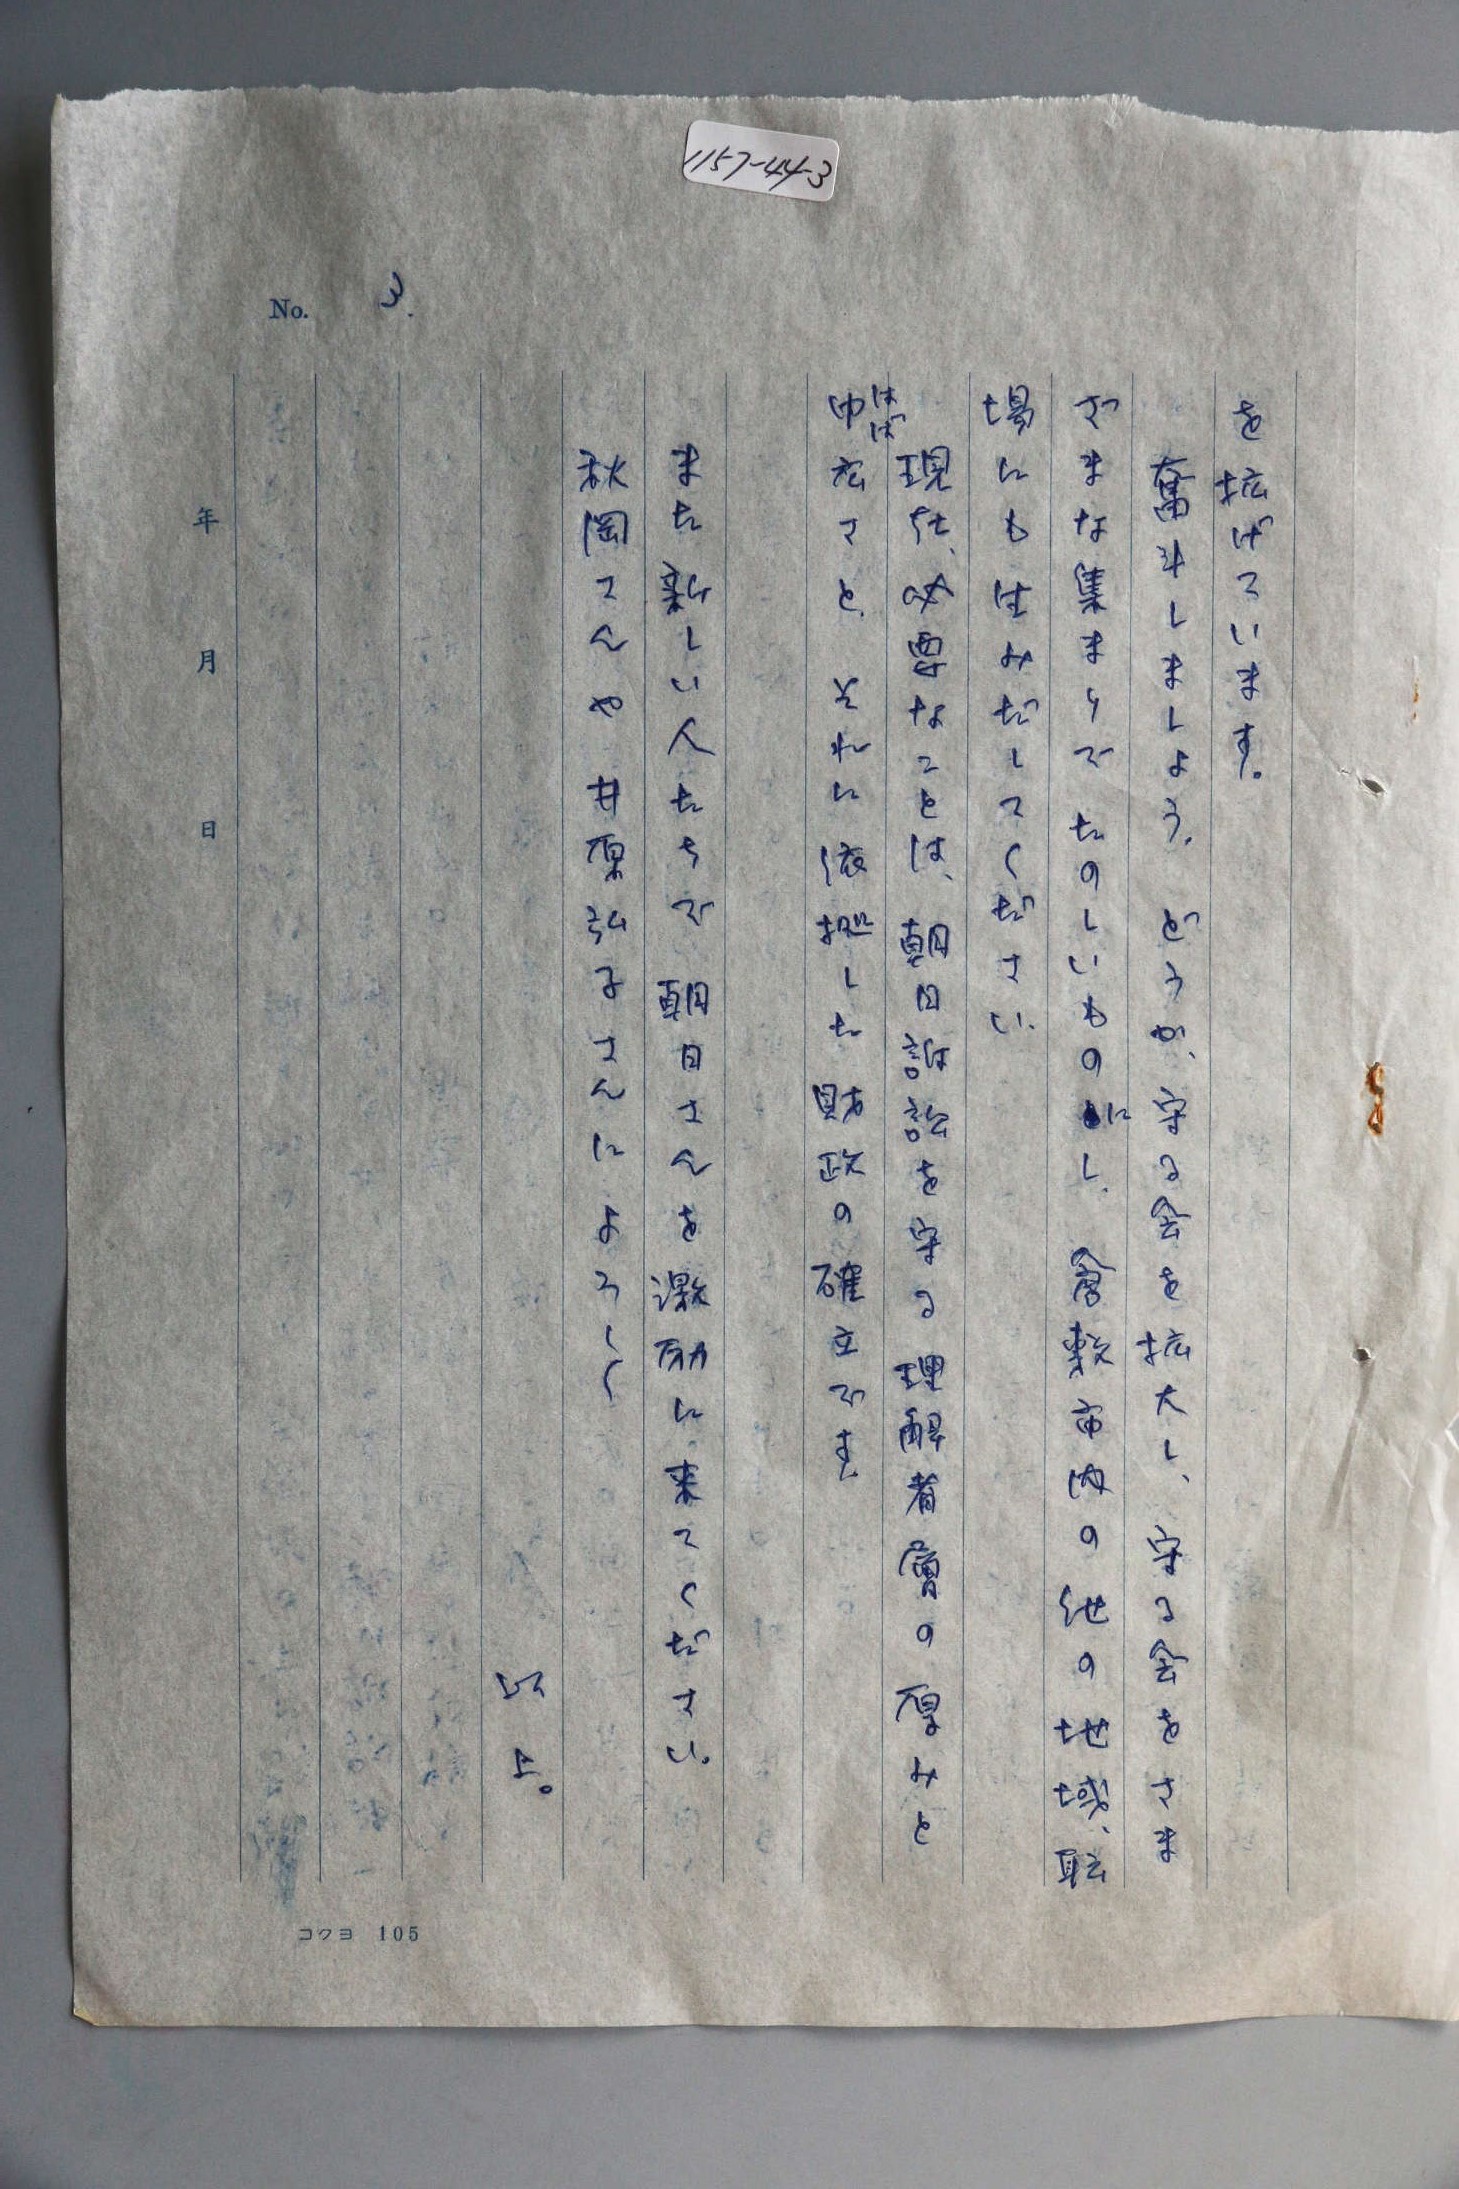 1157-44-3
No. 3.
を拡げています。
奮斗しましょう。どうか、守る会を拡大し、守る会をさま
ざまな集まりで たのしいものにし、倉敷市内の他の地域、職
場にも生みだしてください。
現在、必要なことは、朝日訴訟を守る理解者層の厚みと
巾
はば
広さと、それに依拠した財政の確立です。
また新しい人たちで 朝日さんを激励に来てください。
秋岡さんや 井原弘子さんに よろしく
以上。
年 月 日
コクヨ 105